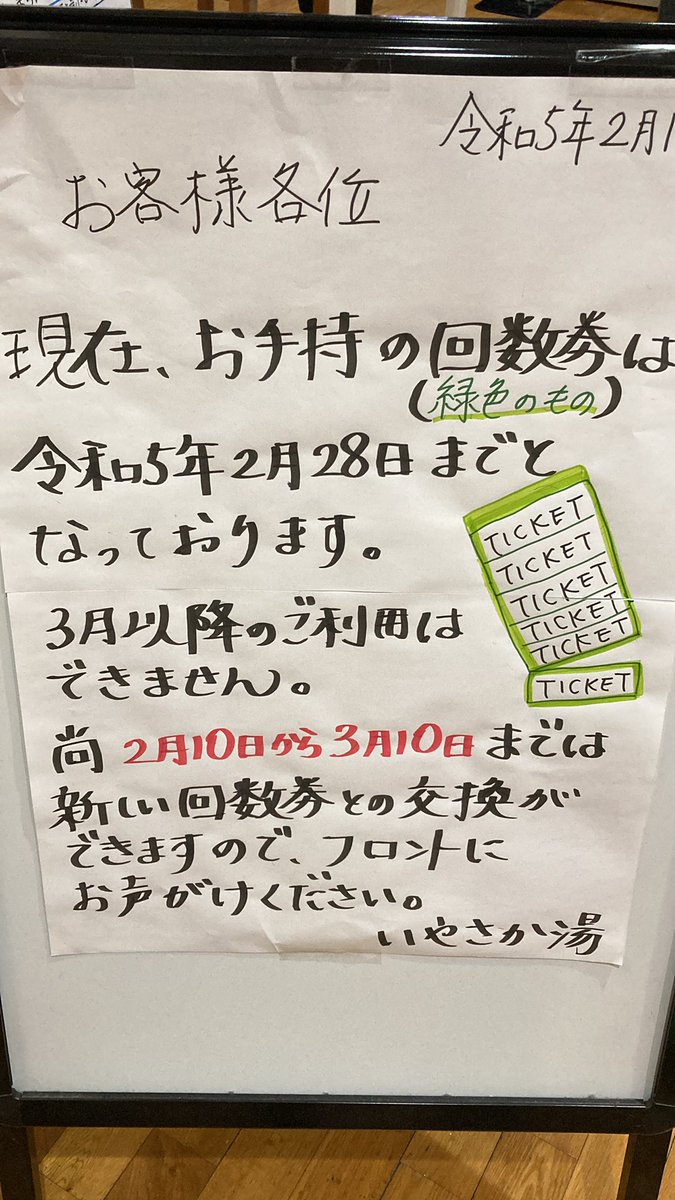 令和5年2月1
お客様各位
現在、お手持の回数券は
(緑色のもの)
令和5年2月28日までと
なっております。
TICKET
TICKET
TICKET
TICKET
TICKET
TICKET
3月以降のご利用は
できません。
尚 2月10日から3月10日までは
新しい回数券との交換が
できますので、フロントに
お声がけください。
いやさか湯